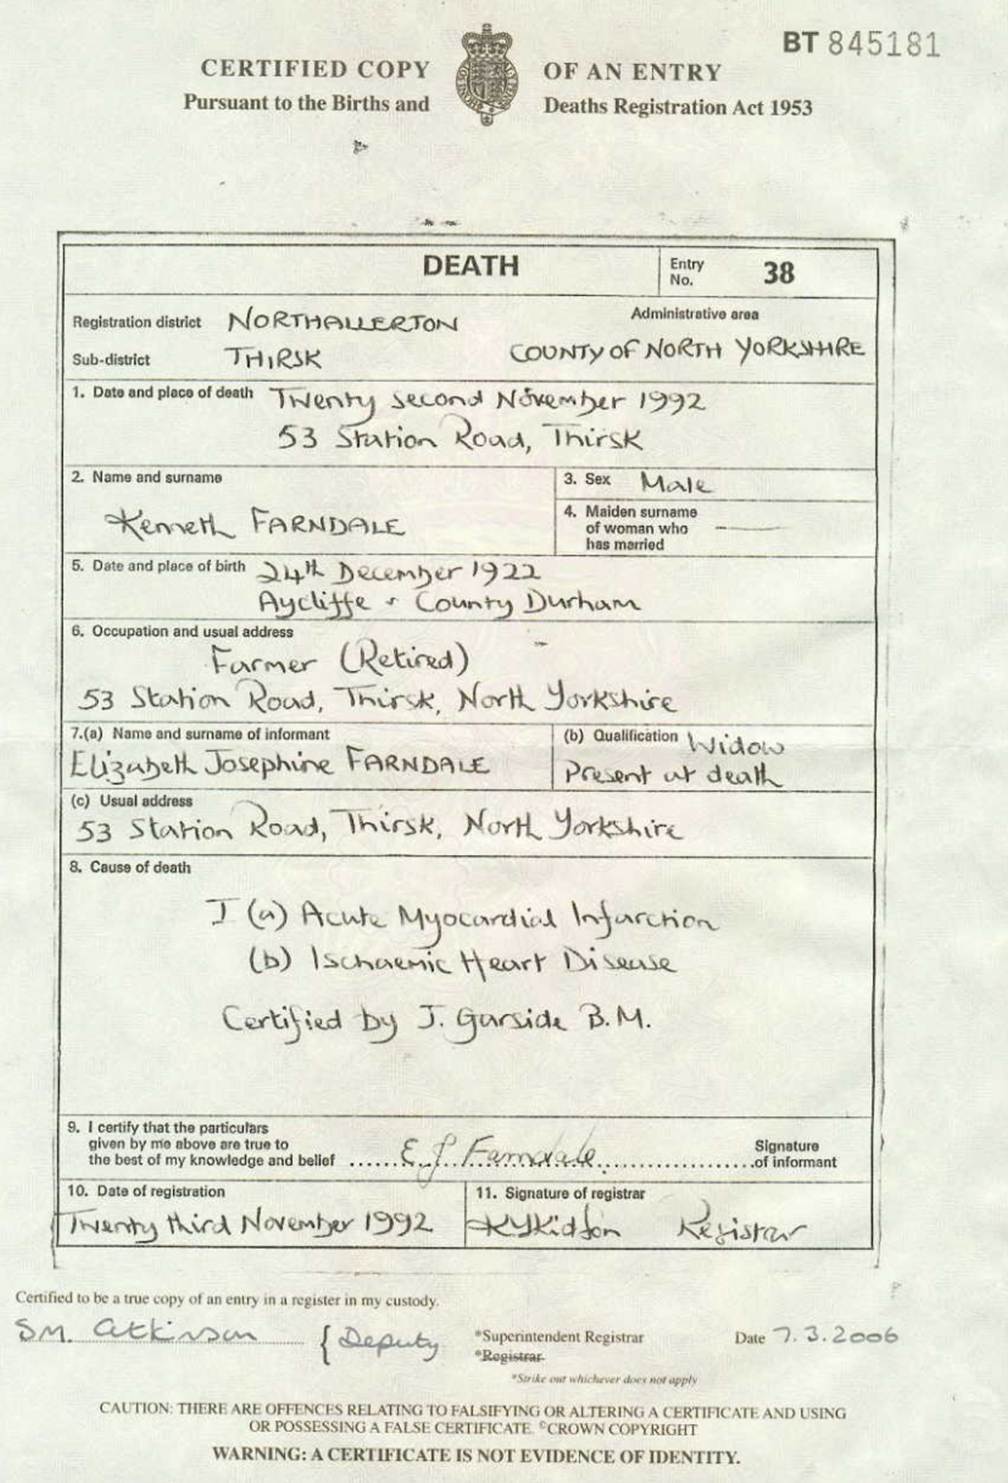 BT 845181
CERTIFIED COPY OF AN ENTRY
Pursuant to the Births and Deaths Registration Act 1953
DEATH
Entry No. 38
Registration district NORTHALLERTON
Administrative area
Sub-district THIRSK
COUNTY OF NORTH YORKSHIRE
1. Date and place of death Twenty second November 1992
53 Station Road, Thirsk
2. Name and surname
Kenneth FARNDALE
3. Sex Male
4. Maiden surname
of woman who
has married
5. Date and place of birth 24th December 1922
Aycliffe - County Durham
6. Occupation and usual address
Farmer (Retired)
53 Station Road, Thirsk, North Yorkshire
7.(a) Name and surname of informant
Elizabeth Josephine FARNDALE
(b) Qualification Widow
Present at death
(c) Usual address
53 Station Road, Thirsk, North Yorkshire
8. Cause of death
I (a) Acute Myocardial Infarction
(b) Ischaemic Heart Disease
Certified by J. Garside B.M.
9. I certify that the particulars
given by me above are true to
the best of my knowledge and belief E J Farndale Signature of informant
10. Date of registration
Twenty third November 1992
11. Signature of registrar
Registrar
Certified to be a true copy of an entry in a register in my custody.
S.M. Atkinson { Deputy
*Superintendent Registrar
*Registrar
Date 7.3.2006
*Strike out whichever does not apply
CAUTION: THERE ARE OFFENCES RELATING TO FALSIFYING OR ALTERING A CERTIFICATE AND USING
OR POSSESSING A FALSE CERTIFICATE. ©CROWN COPYRIGHT
WARNING: A CERTIFICATE IS NOT EVIDENCE OF IDENTITY.